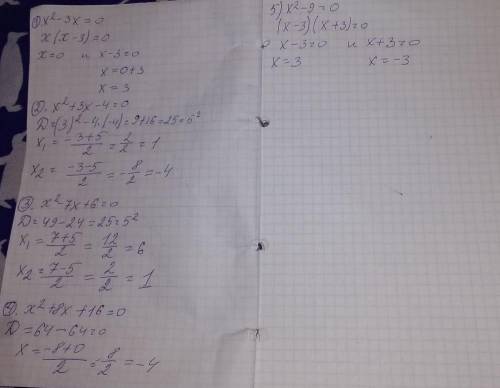 ① x²-3x=0
x(x-3)=0
x=0 и x-3=0
x=0+3
x=3
②. x²+3x-4=0
D=(3)²-4·(-4)=9+16=25=5²
x₁=\frac{-3+5}{2}=\frac{2}{2}=1
x₂=\frac{-3-5}{2}=-\frac{8}{2}=-4
③. x²-7x+6=0
D=49-24=25=5²
x₁=\frac{7+5}{2}=\frac{12}{2}=6
x₂=\frac{7-5}{2}=\frac{2}{2}=1
④. x²+8x+16=0
D=64-64=0
x=\frac{-8+0}{2}=\frac{8}{2}=-4
5) x²-9=0
(x-3)(x+3)=0
x-3=0 и x+3=0
x=3 x=-3